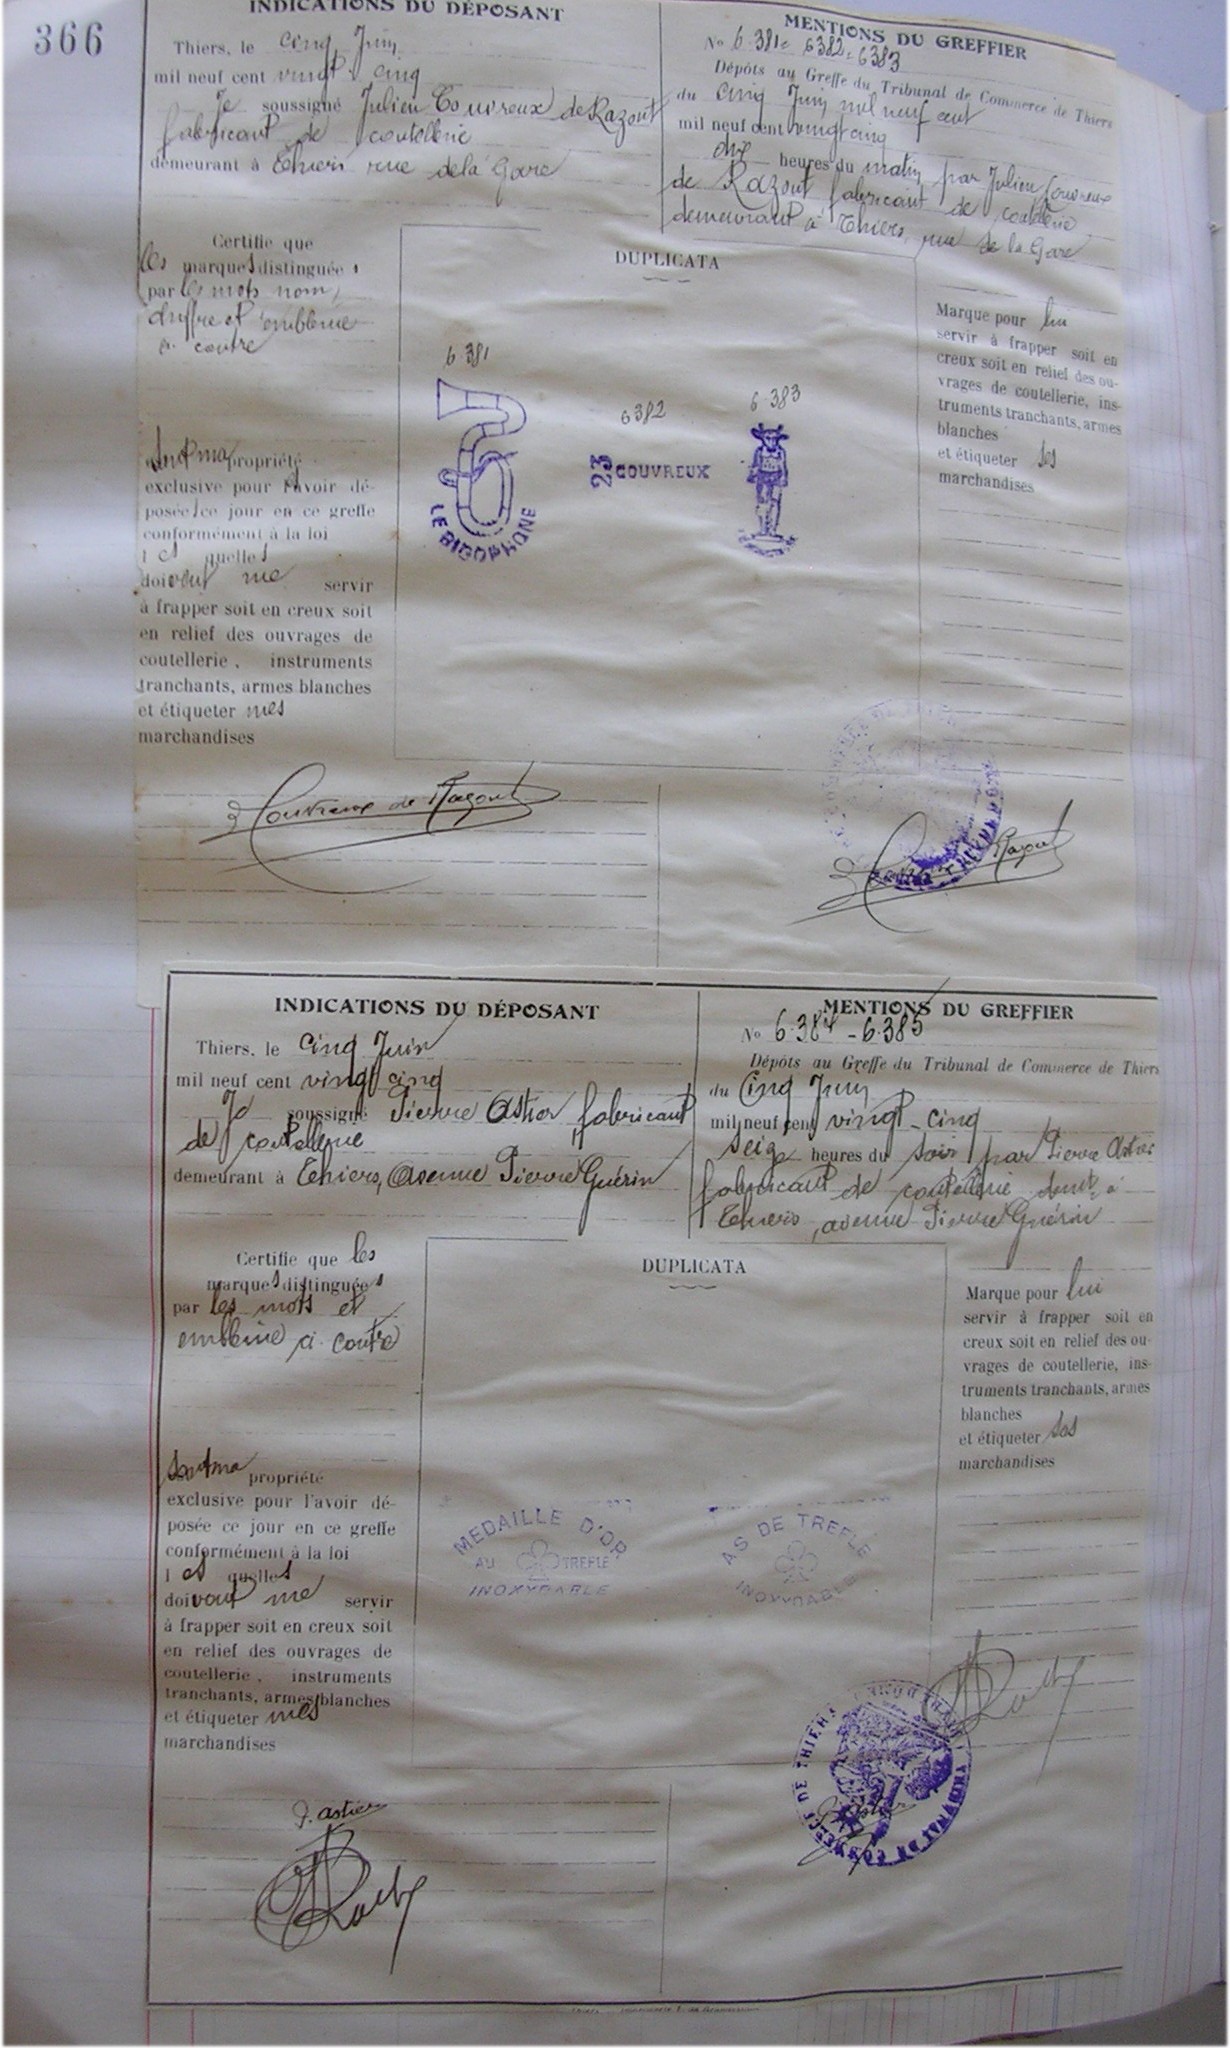 366
INDICATIONS DU DÉPOSANT
Thiers, le cinq Juin
mil neuf cent vingt cinq
Je soussigné Julien Couvreux de Razout
fabricant de coutellerie
demeurant à Thiers rue de la Gare
MENTIONS DU GREFFIER
No 6.381 = 6382 = 6383
Dépôts au Greffe du Tribunal de Commerce de Thiers
du cinq Juin mil neuf cent
mil neuf cent vingt cinq
dix heures du matin par Julien Couvreux
de Razout fabricant de coutellerie
demeurant à Thiers, rue de la Gare
Certifie que
les marques distinguées
par les mots nom,
chiffre et emblème
ci contre
sont ma propriété
exclusive pour l'avoir dé-
posée ce jour en ce greffe
conformément à la loi
les quelles
doivent me servir
à frapper soit en creux soit
en relief des ouvrages de
coutellerie, instruments
tranchants, armes blanches
et étiqueter mes
marchandises
DUPLICATA
6.381
LE BIGOPHONE
6382
23 COUVREUX
6.383
Marque pour lui
servir à frapper soit en
creux soit en relief des ou-
vrages de coutellerie, ins-
truments tranchants, armes
blanches
et étiqueter ses
marchandises
J Couvreux de Razout
Razout
INDICATIONS DU DÉPOSANT
Thiers, le cinq Juin
mil neuf cent vingt cinq
Je soussigné Pierre Astier fabricant
de coutellerie
demeurant à Thiers, Avenue Pierre Guérin
MENTIONS DU GREFFIER
No 6.384 - 6.385
Dépôts au Greffe du Tribunal de Commerce de Thiers
du Cinq Juin
mil neuf cent vingt-cinq
seize heures du soir par Pierre Astier
fabricant de coutellerie demt à
Thiers, avenue Pierre Guérin
Certifie que les
marques distinguées
par les mots et
emblème ci-contre
sont ma propriété
exclusive pour l'avoir dé-
posée ce jour en ce greffe
conformément à la loi
les quelles
doivent me servir
à frapper soit en creux soit
en relief des ouvrages de
coutellerie, instruments
tranchants, armes blanches
et étiqueter mes
marchandises
DUPLICATA
MEDAILLE D'OR
AU TREFLE
INOXYDABLE
AS DE TREFLE
INOXYDABLE
Marque pour lui
servir à frapper soit en
creux soit en relief des ou-
vrages de coutellerie, ins-
truments tranchants, armes
blanches
et étiqueter ses
marchandises
TRIBUNAL DE COMMERCE DE THIERS
P. Astier